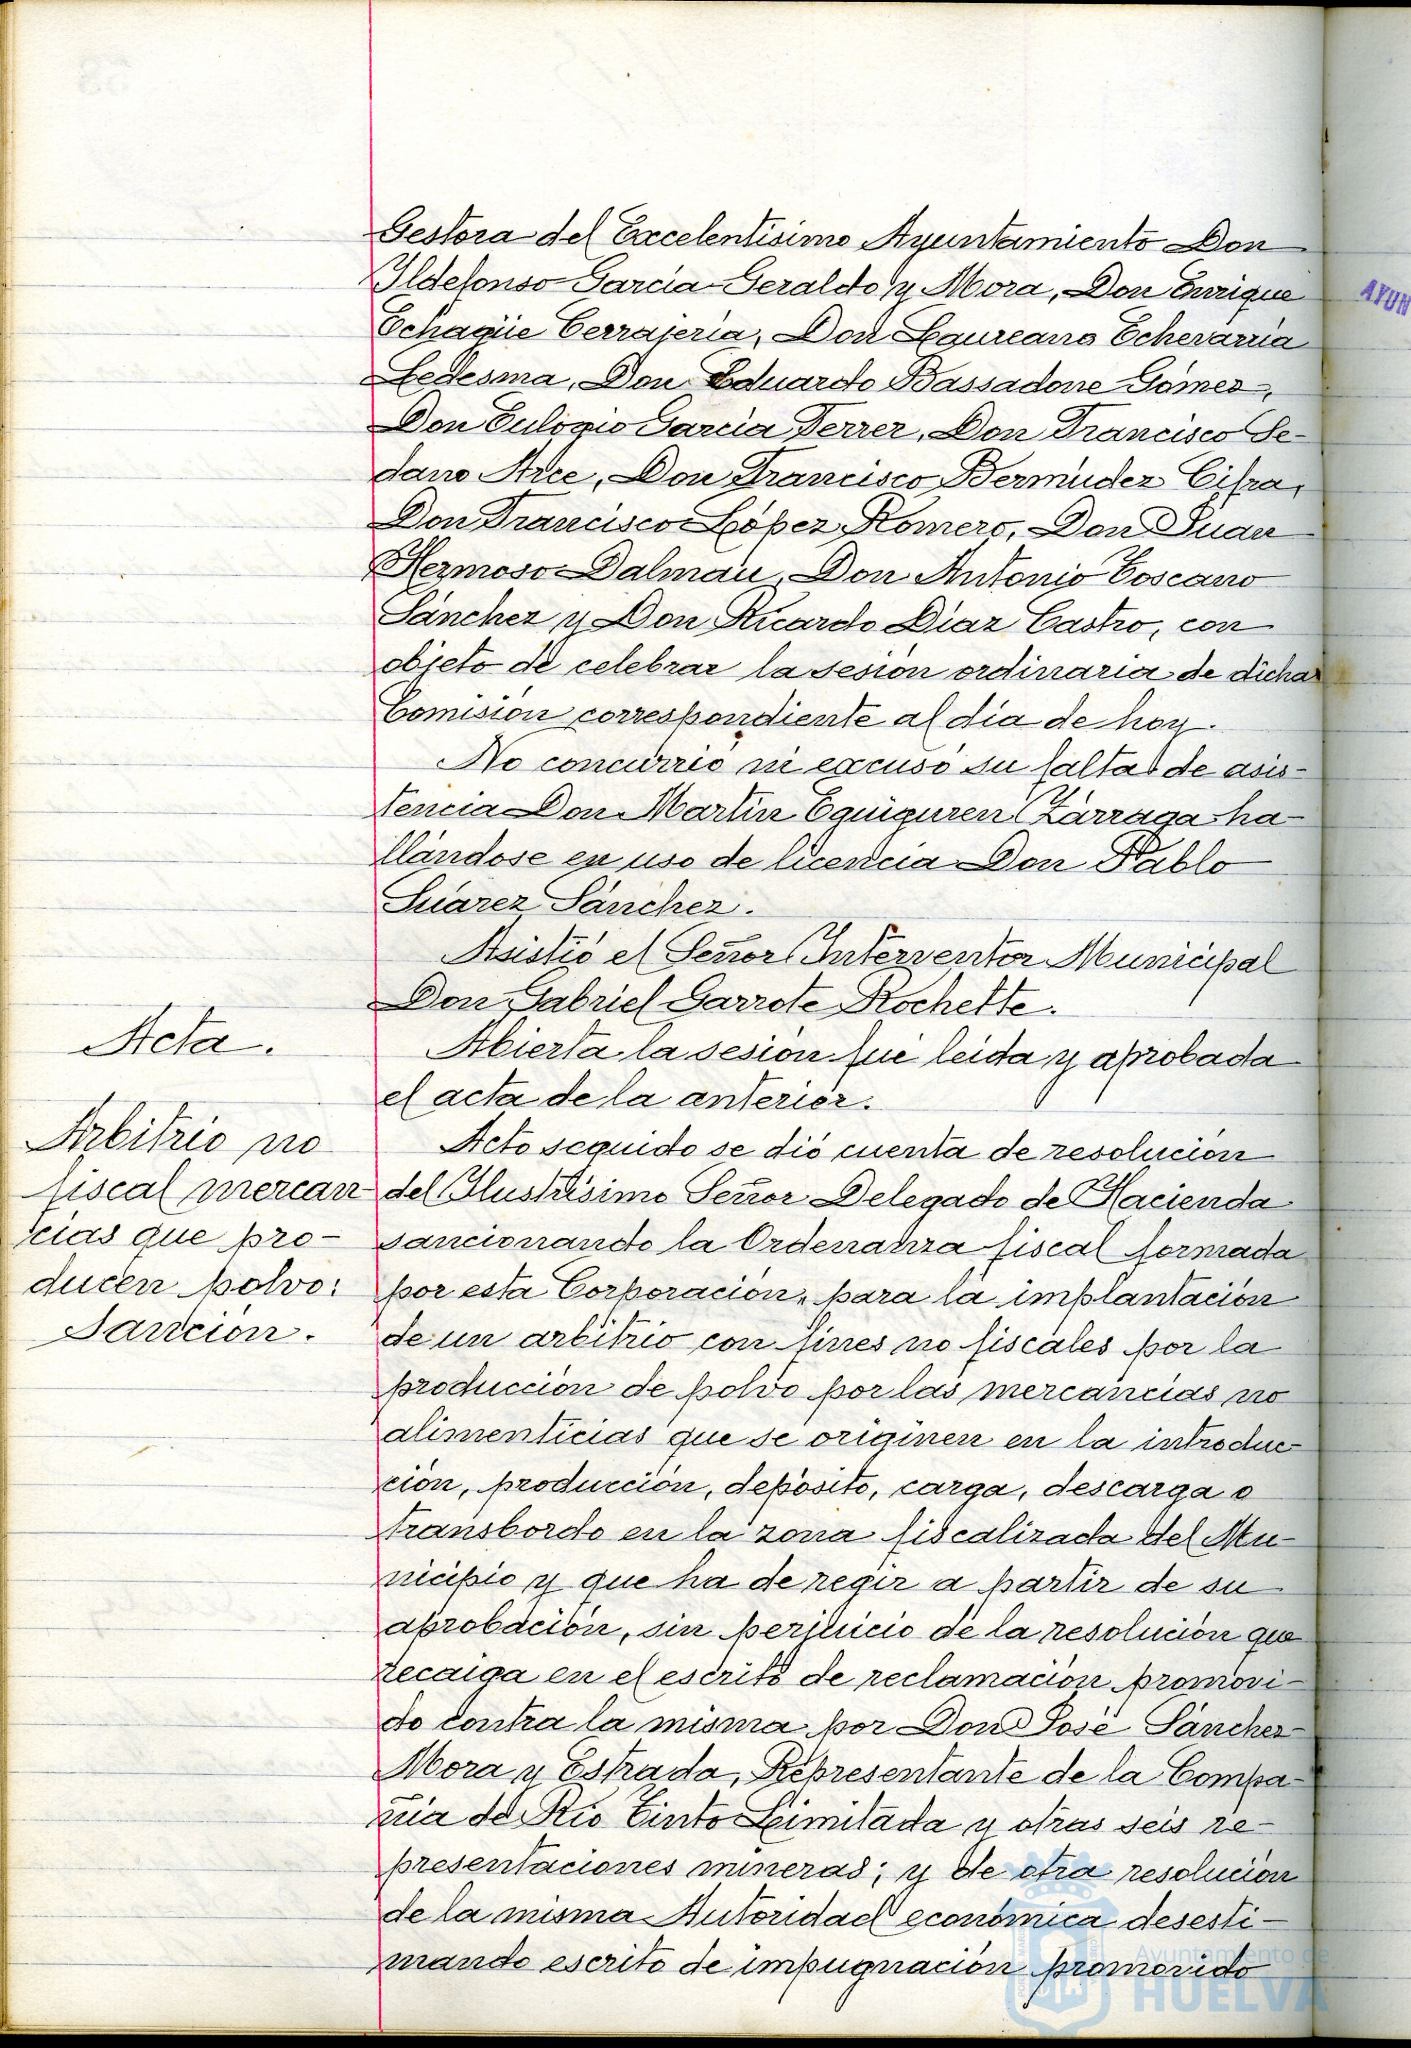 Gestora del Excelentísimo Ayuntamiento Don
Ildefonso García-Geraldo y Mora, Don Enrique
Echagüe Cerrajería, Don Laureano Echevarría
Ledesma, Don Eduardo Bassadone Gómez,
Don Eulogio García Ferrer, Don Francisco Se-
dano Arce, Don Francisco Bermúdez Cifra,
Don Francisco López Romero, Don Juan
Hermoso Dalmau, Don Antonio Toscano
Sánchez y Don Ricardo Díaz Castro, con
objeto de celebrar la sesión ordinaria de dicha
Comisión correspondiente al día de hoy.
No concurrió ni excusó su falta de asis-
tencia Don Martín Eguiguren Zárraga ha-
llándose en uso de licencia Don Pablo
Suárez Sánchez.
Asistió el Señor Interventor Municipal
Don Gabriel Garrote Rochette.
Acta.
Abierta la sesión fué leída y aprobada
el acta de la anterior.
Arbitrio no
fiscal mercan
cías que pro-
ducen polvo:
Sanción.
Acto seguido se dió cuenta de resolución
del Ilustrísimo Señor Delegado de Hacienda
sancionando la Ordenanza fiscal formada
por esta Corporación, para la implantación
de un arbitrio con fines no fiscales por la
producción de polvo por las mercancías no
alimenticias que se originen en la introduc-
ción, producción, depósito, carga, descarga o
transbordo en la zona fiscalizada del Mu-
nicipio y que ha de regir a partir de su
aprobación, sin perjuicio de la resolución que
recaiga en el escrito de reclamación promovi-
do contra la misma por Don José Sánchez
Mora y Estrada, Representante de la Compa-
ñía de Río Tinto Limitada y otras seis re-
presentaciones mineras; y de otra resolución
de la misma Autoridad económica desesti-
mando escrito de impugnación promovido
AYUN
Ayuntamiento de
HUELVA